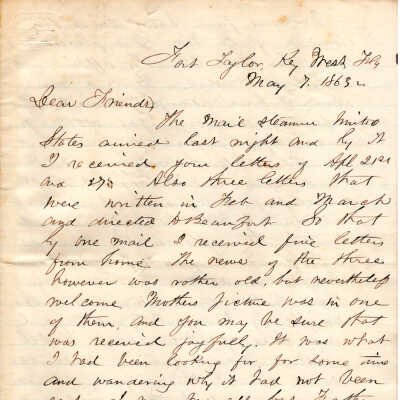 Fort Taylor, Key West, Fla
May 7. 1863.
Dear Friends,
The Mail Steamer United
States arrived last night and by it
I received your letters of Apl 21st
and 27th Also three letters that
were written in Feb and March
and directed to Beaufort So that
by one mail I received five letters
from home The news of the three
however was rather old, but nevertheless
welcome Mothers Picture was in one
of them, and you may be sure that
was received joyfully. It was what
I had been looking for for some time
and wandering why it had not been